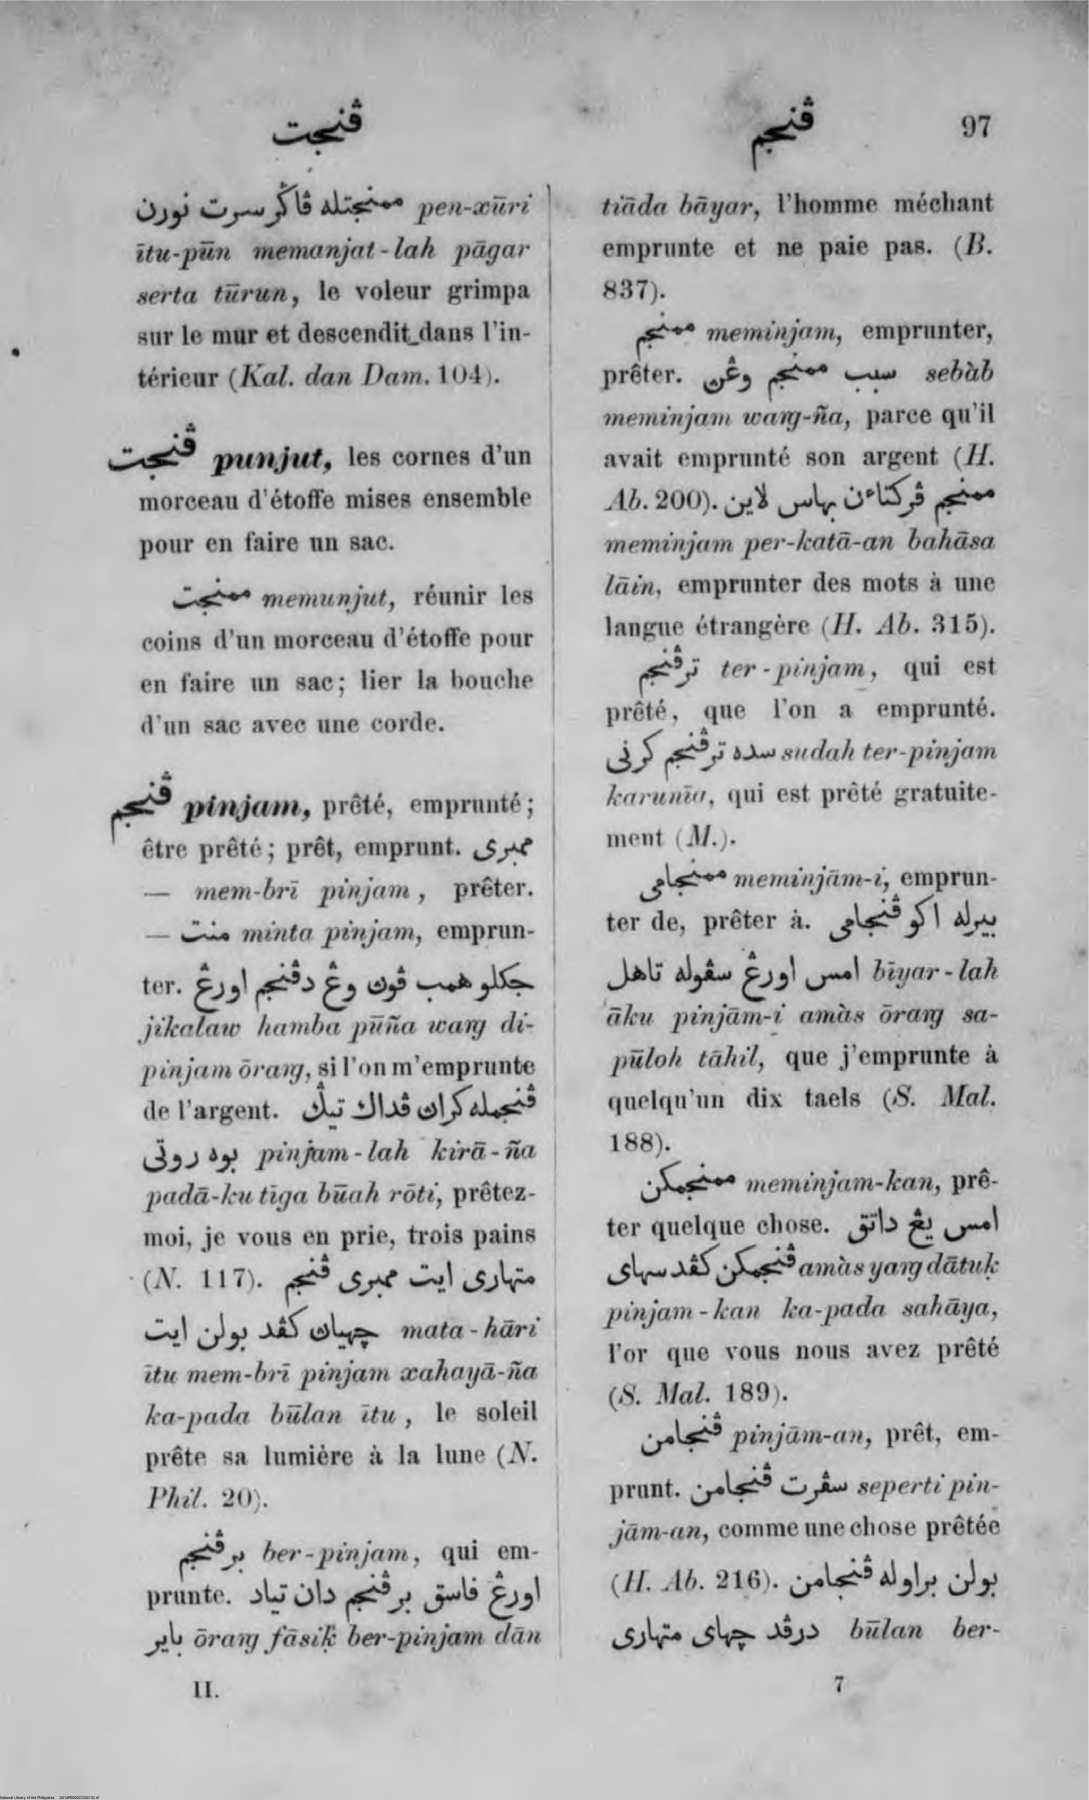 ڤنجت
ڤنجم 97
ممنجتله ڤاݢر سرت تورن pen-xūri
ītu-pūn memanjat-lah pāgar
serta tūrun, le voleur grimpa
sur le mur et descendit dans l'in-
térieur (Kal. dan Dam. 104).
ڤنجت punjut, les cornes d'un
morceau d'étoffe mises ensemble
pour en faire un sac.
ممنجت memunjut, réunir les
coins d'un morceau d'étoffe pour
en faire un sac; lier la bouche
d'un sac avec une corde.
ڤنجم pinjam, prêté, emprunté;
être prêté; prêt, emprunt. ممبرى
— mem-brī pinjam, prêter.
— منت minta pinjam, emprun-
ter. جكلو همب ڤون وڠ دڤنجم اورڠ
jikalaw hamba pūña warg di-
pinjam ōrarg, si l'on m'emprunte
de l'argent. ڤنجمله كران ڤداك تيݢ
بوه روتى pinjam-lah kirā-ña
padā-ku tīga būah rōti, prêtez-
moi, je vous en prie, trois pains
(N. 117). متهارى ايت ممبرى ڤنجم
چهيان كڤد بولن ايت mata-hāri
ītu mem-brī pinjam xahayā-ña
ka-pada būlan ītu, le soleil
prête sa lumière à la lune (N.
Phil. 20).
برڤنجم ber-pinjam, qui em-
prunte. اورڠ فاسق برڤنجم دان تياد
باير ōrarg fāsiḳ ber-pinjam dān
II.
tiāda bāyar, l'homme méchant
emprunte et ne paie pas. (B.
837).
ممنجم meminjam, emprunter,
prêter. سبب ممنجم وڠن sebàb
meminjam warg-ña, parce qu'il
avait emprunté son argent (H.
Ab. 200). ممنجم ڤركتاءن بهاس لاين
meminjam per-katā-an bahāsa
lāin, emprunter des mots à une
langue étrangère (H. Ab. 315).
ترڤنجم ter-pinjam, qui est
prêté, que l'on a emprunté.
سده ترڤنجم كرنى sudah ter-pinjam
karunīa, qui est prêté gratuite-
ment (M.).
ممنجامى meminjām-i, emprun-
ter de, prêter à. بيرله اكو ڤنجامى
امس اورڠ سڤوله تاهل bīyar-lah
āku pinjām-i amàs ōrarg sa-
pūloh tāhil, que j'emprunte à
quelqu'un dix taels (S. Mal.
188).
ممنجمكن meminjam-kan, prê-
ter quelque chose. امس يڠ داتق
ڤنجمكن كڤد سهاى amàs yarg dātuḳ
pinjam-kan ka-pada sahāya,
l'or que vous nous avez prêté
(S. Mal. 189).
ڤنجامن pinjām-an, prêt, em-
prunt. سڤرت ڤنجامن seperti pin-
jām-an, comme une chose prêtée
(H. Ab. 216). بولن براوله ڤنجامن
درڤد چهاى متهارى būlan ber-
7